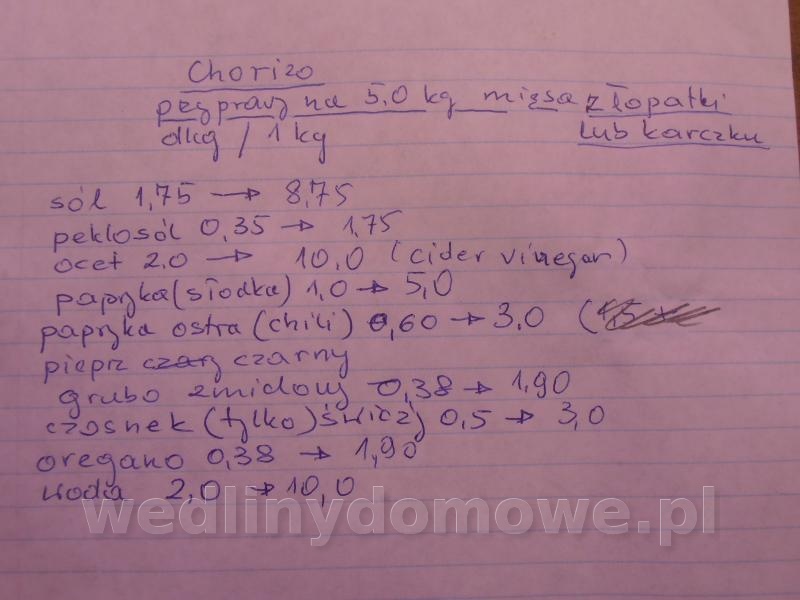 Chorizo
przyprawy na 5,0 kg mięsa z łopatki
dkg / 1 kg lub karczku
sól 1,75 → 8,75
peklosól 0,35 → 1,75
ocet 2.0 → 10,0 (cider vinegar)
papryka (słodka) 1,0 → 5,0
papryka ostra (chili) 0,60 → 3,0 (
pieprz czarny
grubo zmidowy 0,38 → 1,90
czosnek (tylko) świeży 0,5 → 3,0
oregano 0,38 → 1,90
woda 2,0 → 10,0
wedlinydomowe.pl